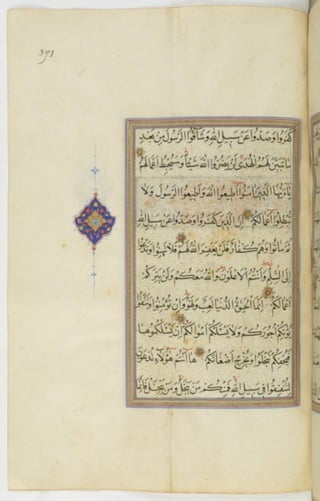 ٣٧١
كفروا وصدوا عن سبيل الله وشاقوا الرسول من بعد
ما تبين لهم الهدى لن يضروا الله شيئا وسيحبط اعمالهم
يا ايها الذين امنوا اطيعوا الله واطيعوا الرسول ولا
تبطلوا اعمالكم ان الذين كفروا وصدوا عن سبيل الله
ثم ماتوا وهم كفار فلن يغفر الله لهم فلا تهنوا وتدعوا
الى السلم وانتم الاعلون والله معكم ولن يتركم
اعمالكم انما الحيوة الدنيا لعب ولهو وان تؤمنوا وتتقوا
يؤتكم اجوركم ولا يسئلكم اموالكم ان يسئلكموها
فيحفكم تبخلوا ويخرج اضغانكم ها انتم هؤلاء تدعون
لتنفقوا في سبيل الله فمنكم من يبخل ومن يبخل فانما